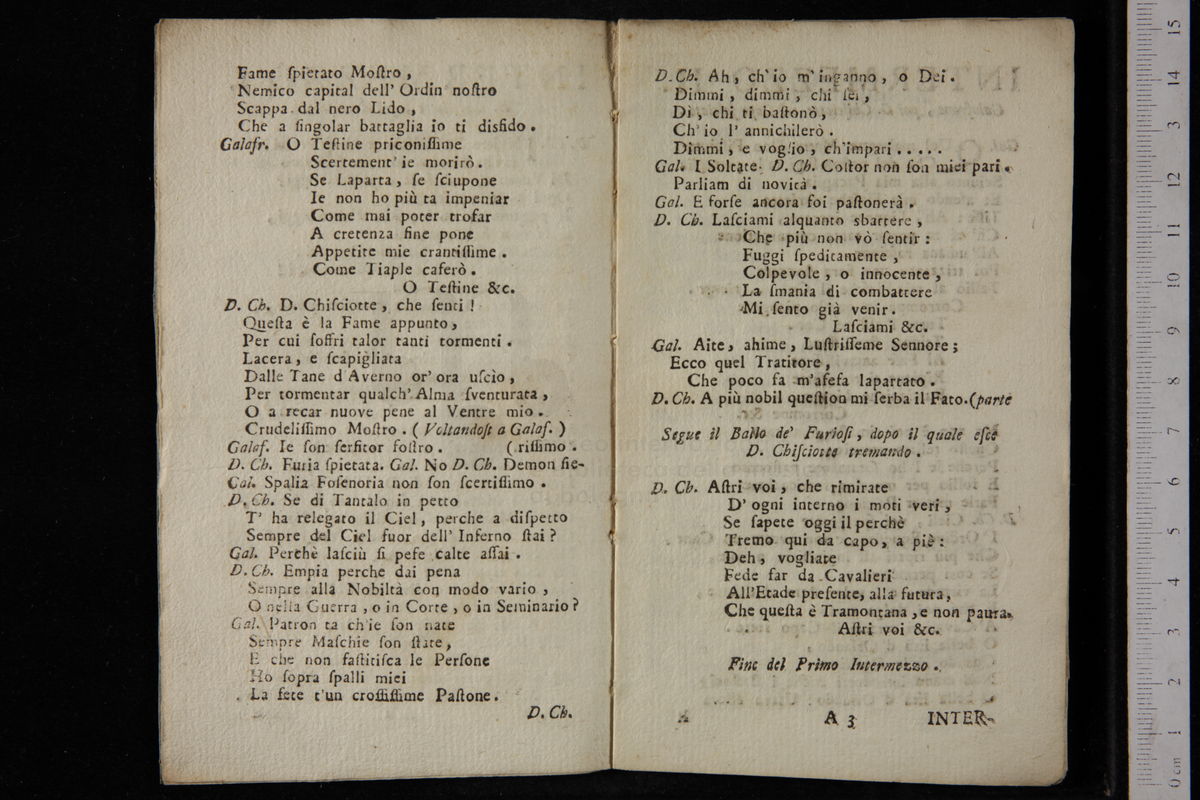 Fame ſpietato Moſtro ,
Nemico capital dell' Ordin noſtro
Scappa dal nero Lido ,
Che a ſingolar battaglia io ti disfido .
Galafr. O Teſtine priconiſſime
Scertement' ie morirò .
Se Laparta , ſe ſciupone
Ie non ho più ta impeniar
Come mai poter trofar
A cretenza ſine pone
Appetite mie crantiſſime .
Come Tiaple caferò .
O Teſtine &c.
D. Ch. D. Chiſciotte , che ſenti !
Queſta è la Fame appunto ,
Per cui ſoffri talor tanti tormenti .
Lacera , e ſcapigliata
Dalle Tane d'Averno or' ora uſcìo ,
Per tormentar qualch' Alma ſventurata ,
O a recar nuove pene al Ventre mio .
Crudeliſſimo Moſtro . ( Voltandoſi a Galaf. )
Galaf. Ie ſon ſerfitor foſtro . ( riſſimo .
D. Ch. Furia ſpietata. Gal. No D. Ch. Demon fie-
Gal. Spalia Foſenoria non ſon ſcertiſſimo .
D. Ch. Se di Tantalo in petto
T' ha relegato il Ciel , perche a diſpetto
Sempre del Ciel fuor dell' Inferno ſtai ?
Gal. Perchè laſciù ſi pefe calte aſſai .
D. Ch. Empia perche dai pena
Sempre alla Nobiltà con modo vario ,
O nella Guerra , o in Corte , o in Seminario ?
Gal. Patron ta ch'ie ſon nate
Sempre Maſchie ſon ſtate ,
E che non faſtitiſca le Perſone
Ho ſopra ſpalli miei
La fete t'un croſſiſſime Paſtone .
D. Ch.
D. Ch. Ah , ch' io m' inganno , o Dei .
Dimmi , dimmi , chi ſei ,
Dì , chi ti baſtonò ,
Ch' io l' annichilerò .
Dimmi , e voglio , ch'impari . . . . .
Gal. I Soltate. D. Ch. Coſtor non ſon miei pari .
Parliam di novità .
Gal. E forſe ancora foi paſtonerà .
D. Ch. Laſciami alquanto sbattere ,
Che più non vò ſentir :
Fuggi ſpeditamente ,
Colpevole , o innocente ,
La ſmania di combattere
Mi ſento già venir .
Laſciami &c.
Gal. Aite , ahime , Luſtriſſeme Sennore ;
Ecco quel Tratitore ,
Che poco fa m'afefa lapartato .
D. Ch. A più nobil queſtion mi ſerba il Fato.(parte
Segue il Ballo de' Furioſi , dopo il quale eſce
D. Chiſciotte tremando .
D. Ch. Aſtri voi , che rimirate
D' ogni interno i moti veri ,
Se ſapete oggi il perchè
Tremo qui da capo , a piè :
Deh , vogliate
Fede far da Cavalieri
All'Etade preſente, alla futura ,
Che queſta è Tramontana , e non paura.
Aſtri voi &c.
Fine del Primo Intermezzo .
A 3 INTER-